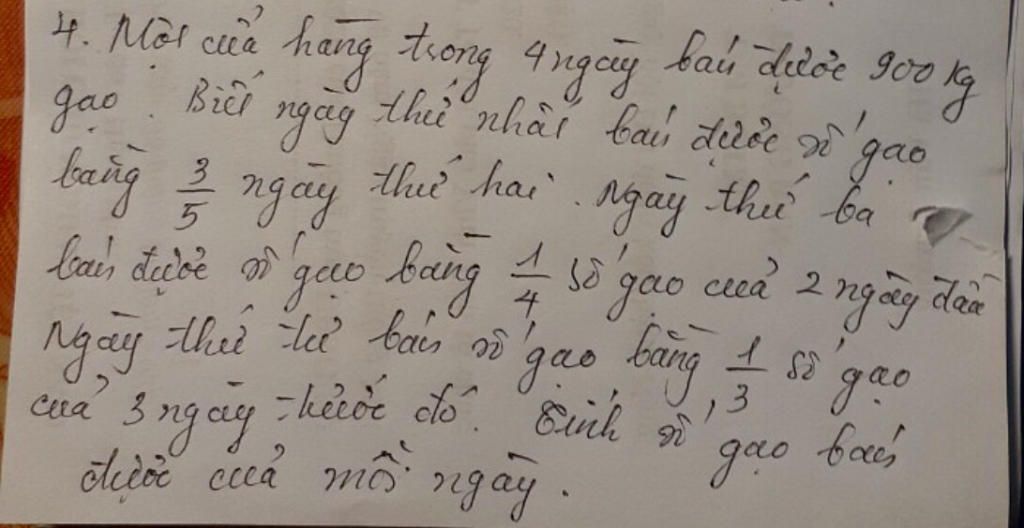 4. Một cửa hàng trong 4 ngày bán được 900 kg
gạo. Biết ngày thứ nhất bán được số gạo
bằng 3/5 ngày thứ hai. Ngày thứ ba
bán được số gạo bằng 1/4 số gạo của 2 ngày đầu
Ngày thứ tư bán số gạo bằng 1/3 số gạo
của 3 ngày trước đó. Tính số gạo bán
được của mỗi ngày.